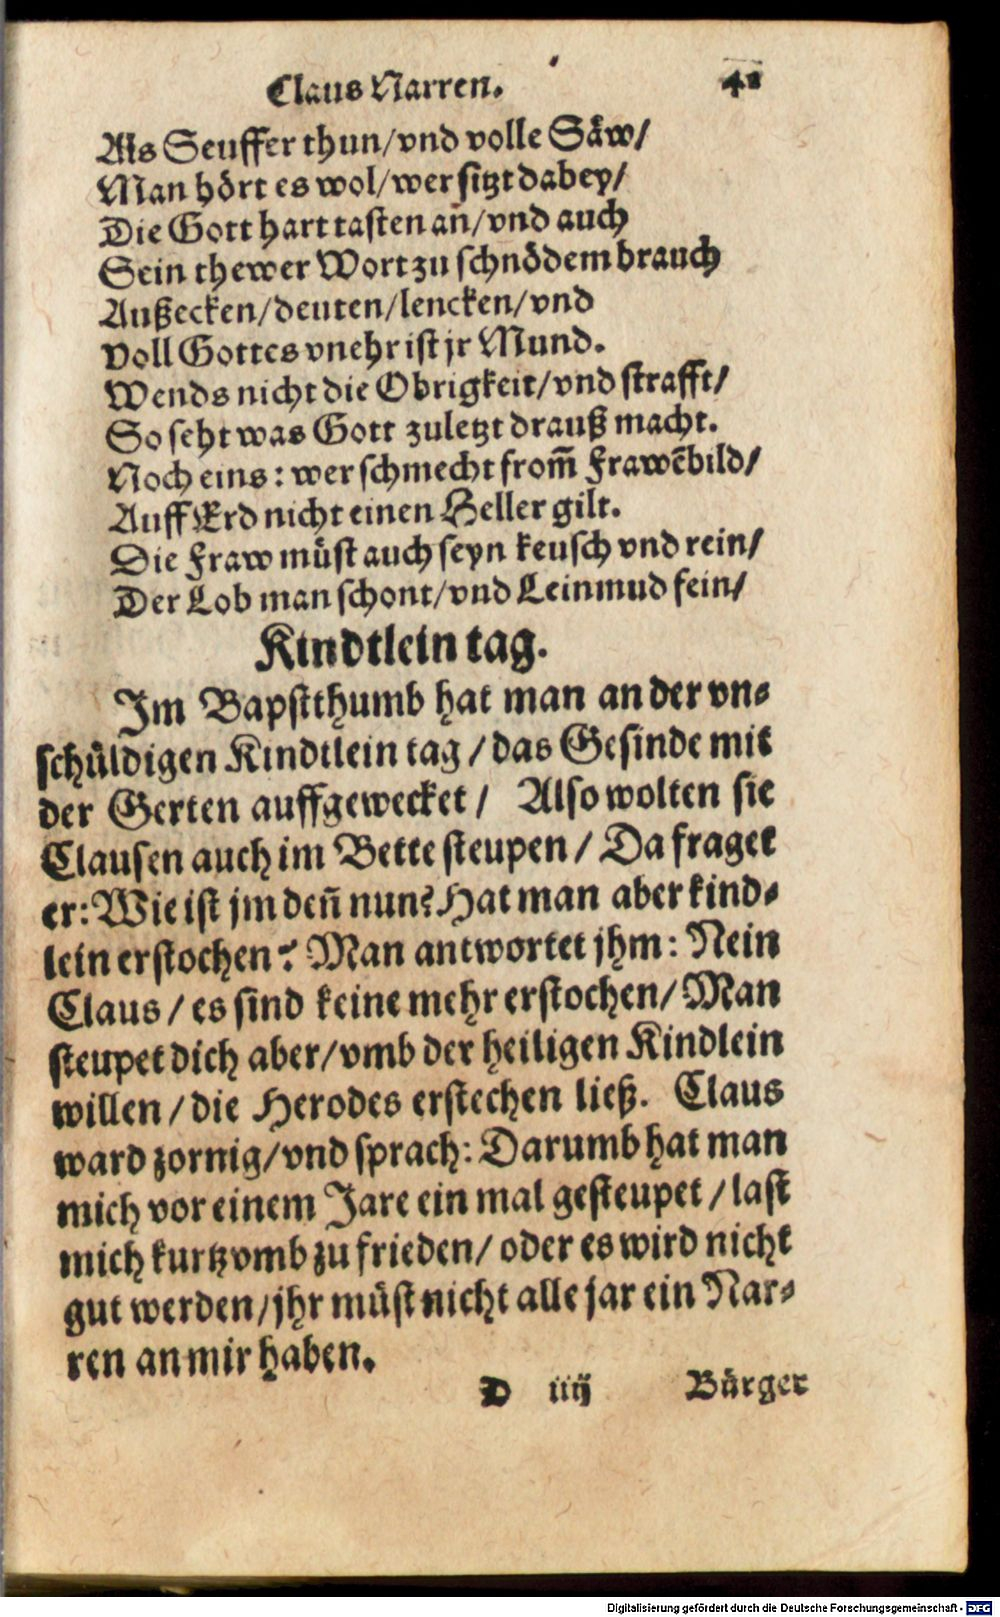 Claus Narren. 42
Als Seuffer thun/vnd volle Säw/
Man hört es wol/wer sitzt dabey/
Die Gott hart tasten an̄/vnd auch
Sein thewer Wort zu schnödem brauch
Außecken/deuten/lencken/vnd
Voll Gottes vnehr ist jr Mund.
Wends nicht die Obrigkeit/vnd strafft/
So seht was Gott zuletzt drauß macht.
Noch eins: wer schmecht from̄ Frawēbild/
Auff Erd nicht einen Heller gilt.
Die Fraw müst auch seyn keusch vnd rein/
Der Lob man schont/vnd Leinmud fein/
Kindtlein tag.
Im Bapstthumb hat man an der vn-
schüldigen Kindtlein tag/das Gesinde mit
der Gerten auffgewecket/ Also wolten sie
Clausen auch im Bette steupen/Da fraget
er: Wie ist jm den̄ nun? Hat man aber kind-
lein erstochen? Man antwortet jhm: Nein
Claus/es sind keine mehr erstochen/Man
steupet dich aber/vmb der heiligen Kindlein
willen/die Herodes erstechen ließ. Claus
ward zornig/vnd sprach: Darumb hat man
mich vor einem Jare ein mal gesteupet/last
mich kurtzvmb zu frieden/oder es wird nicht
gut werden/jhr müst nicht alle jar ein Nar-
ren an mir haben.
D iiij Bürger
Digitalisierung gefördert durch die Deutsche Forschungsgemeinschaft - DFG